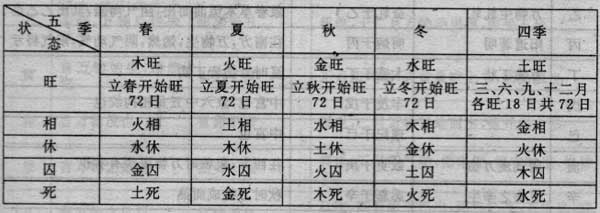 状 五 季
态 春 夏 秋 冬 四季
旺 木旺 火旺 金旺 水旺 土旺
立春开始旺72日 立夏开始旺72日 立秋开始旺72日 立冬开始旺72日 三、六、九、十二月各旺18日共72日
相 火相 土相 水相 木相 金相
休 水休 木休 土休 金休 火休
囚 金囚 水囚 火囚 土囚 木囚
死 土死 金死 木死 火死 水死